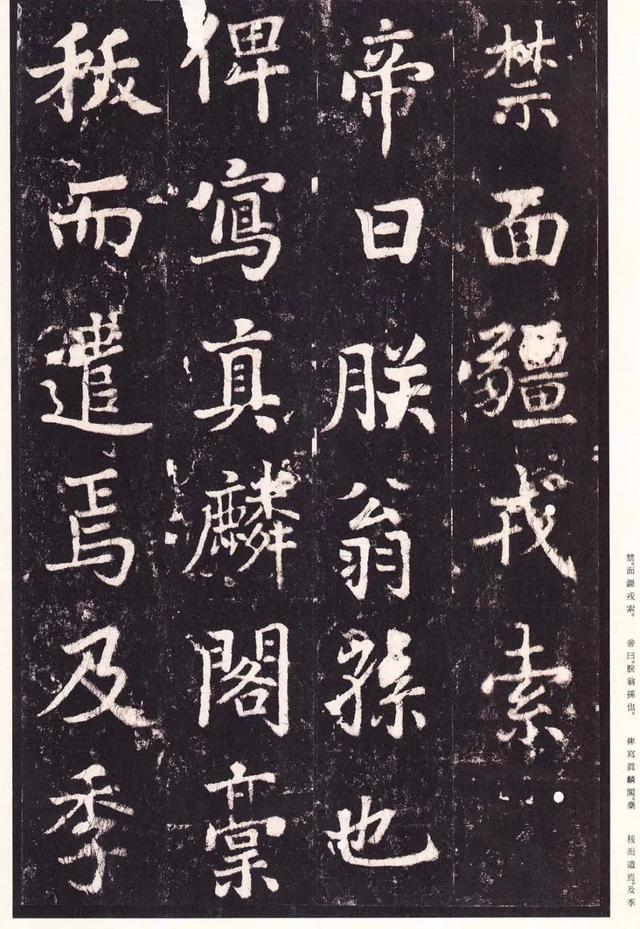 禁面疆戎索
帝曰朕翁孫也
俾寫真麟閣藁
秡而遣焉及季
禁。面疆戎索。 帝曰。朕翁孫也。 俾寫眞麟閣。藁 秡而遣焉。及季